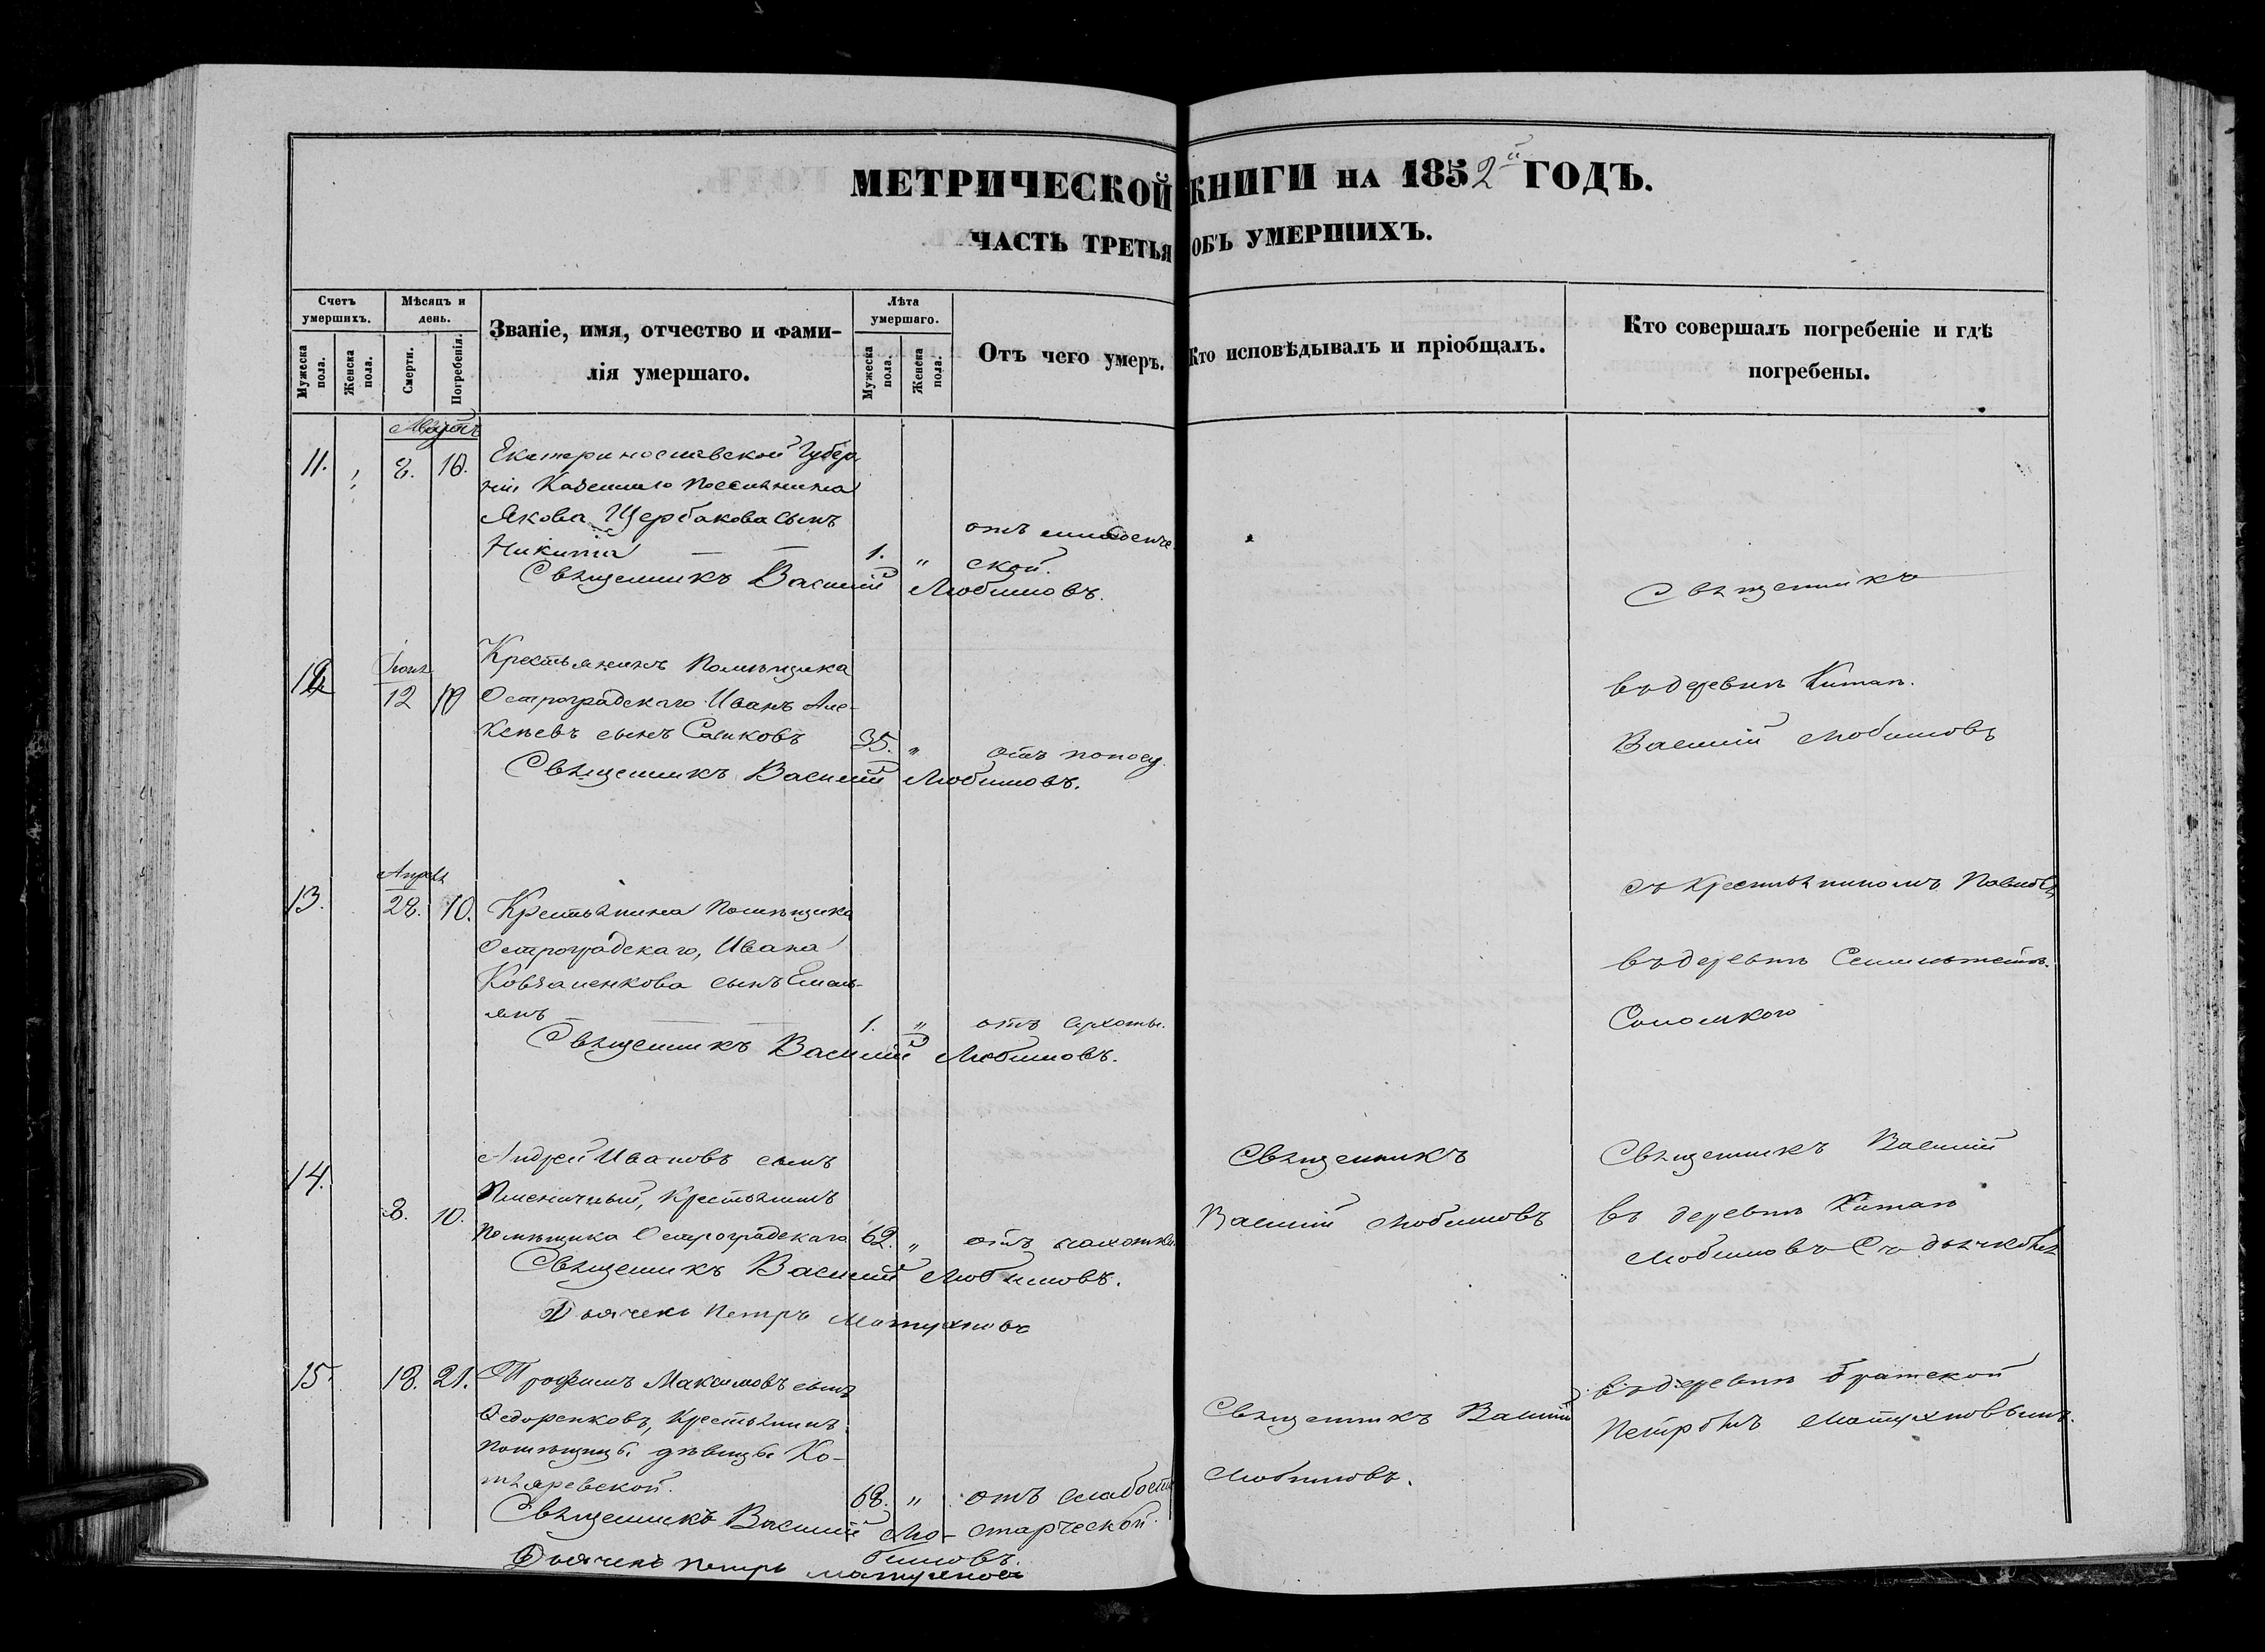 МЕТРИЧЕСКОЙ КНИГИ НА 1852й ГОДЪ.
ЧАСТЬ ТРЕТЬЯ ОБЪ УМЕРШИХЪ.
Счетъ умершихъ.
Мужеска пола.
Женска пола.
Мѣсяцъ и день.
Смерти.
Погребенія.
Званіе, имя, отчество и фами-
лія умершаго.
Лѣта умершаго.
Мужеска пола.
Женска пола.
Отъ чего умеръ.
Кто исповѣдывалъ и пріобщалъ.
Кто совершалъ погребеніе и гдѣ
погребены.
Мартъ
11. 8. 10. Екатеринославской Губер
ніи Казеннаго Поселянина
Якова Щербакова сынъ
Никита 1. " отъ младенче
ской.
Священникъ Василій Любимовъ.
Священникъ
12 10 Крестьянинъ Помѣщика
Остроградскаго Иванъ Але-
ксѣевъ сынъ 35. " отъ поносу
Священникъ Василій Любимовъ.
въ деревнѣ Китай.
Василій Любимовъ
13. 28. 10. Крестьянина Помѣщика
Остроградскаго, Ивана
сынъ Емель-
янъ 1. " отъ сухоты.
Священникъ Василій Любимовъ.
въ деревнѣ
14. 8. 10. Андрей Ивановъ сынъ
Пшеничный, Крестьянинъ
Помѣщика Остроградскаго 62. " отъ
Священникъ Василій Любимовъ.
Дьячекъ Петръ
Священникъ
Василій Любимовъ
Священникъ Василій
въ деревнѣ Китай
Любимовъ съ
15. 18. 21. Трофимъ Максимовъ сынъ
Федоренковъ, Крестьянинъ
Помѣщицы дѣвицы Ко-
тляревской. 68. " отъ слабости
старческой.
Священникъ Василій Лю-
бимовъ.
Дьячекъ Петръ
Священникъ Василій
Любимовъ.
въ деревнѣ Братской
Петромъ